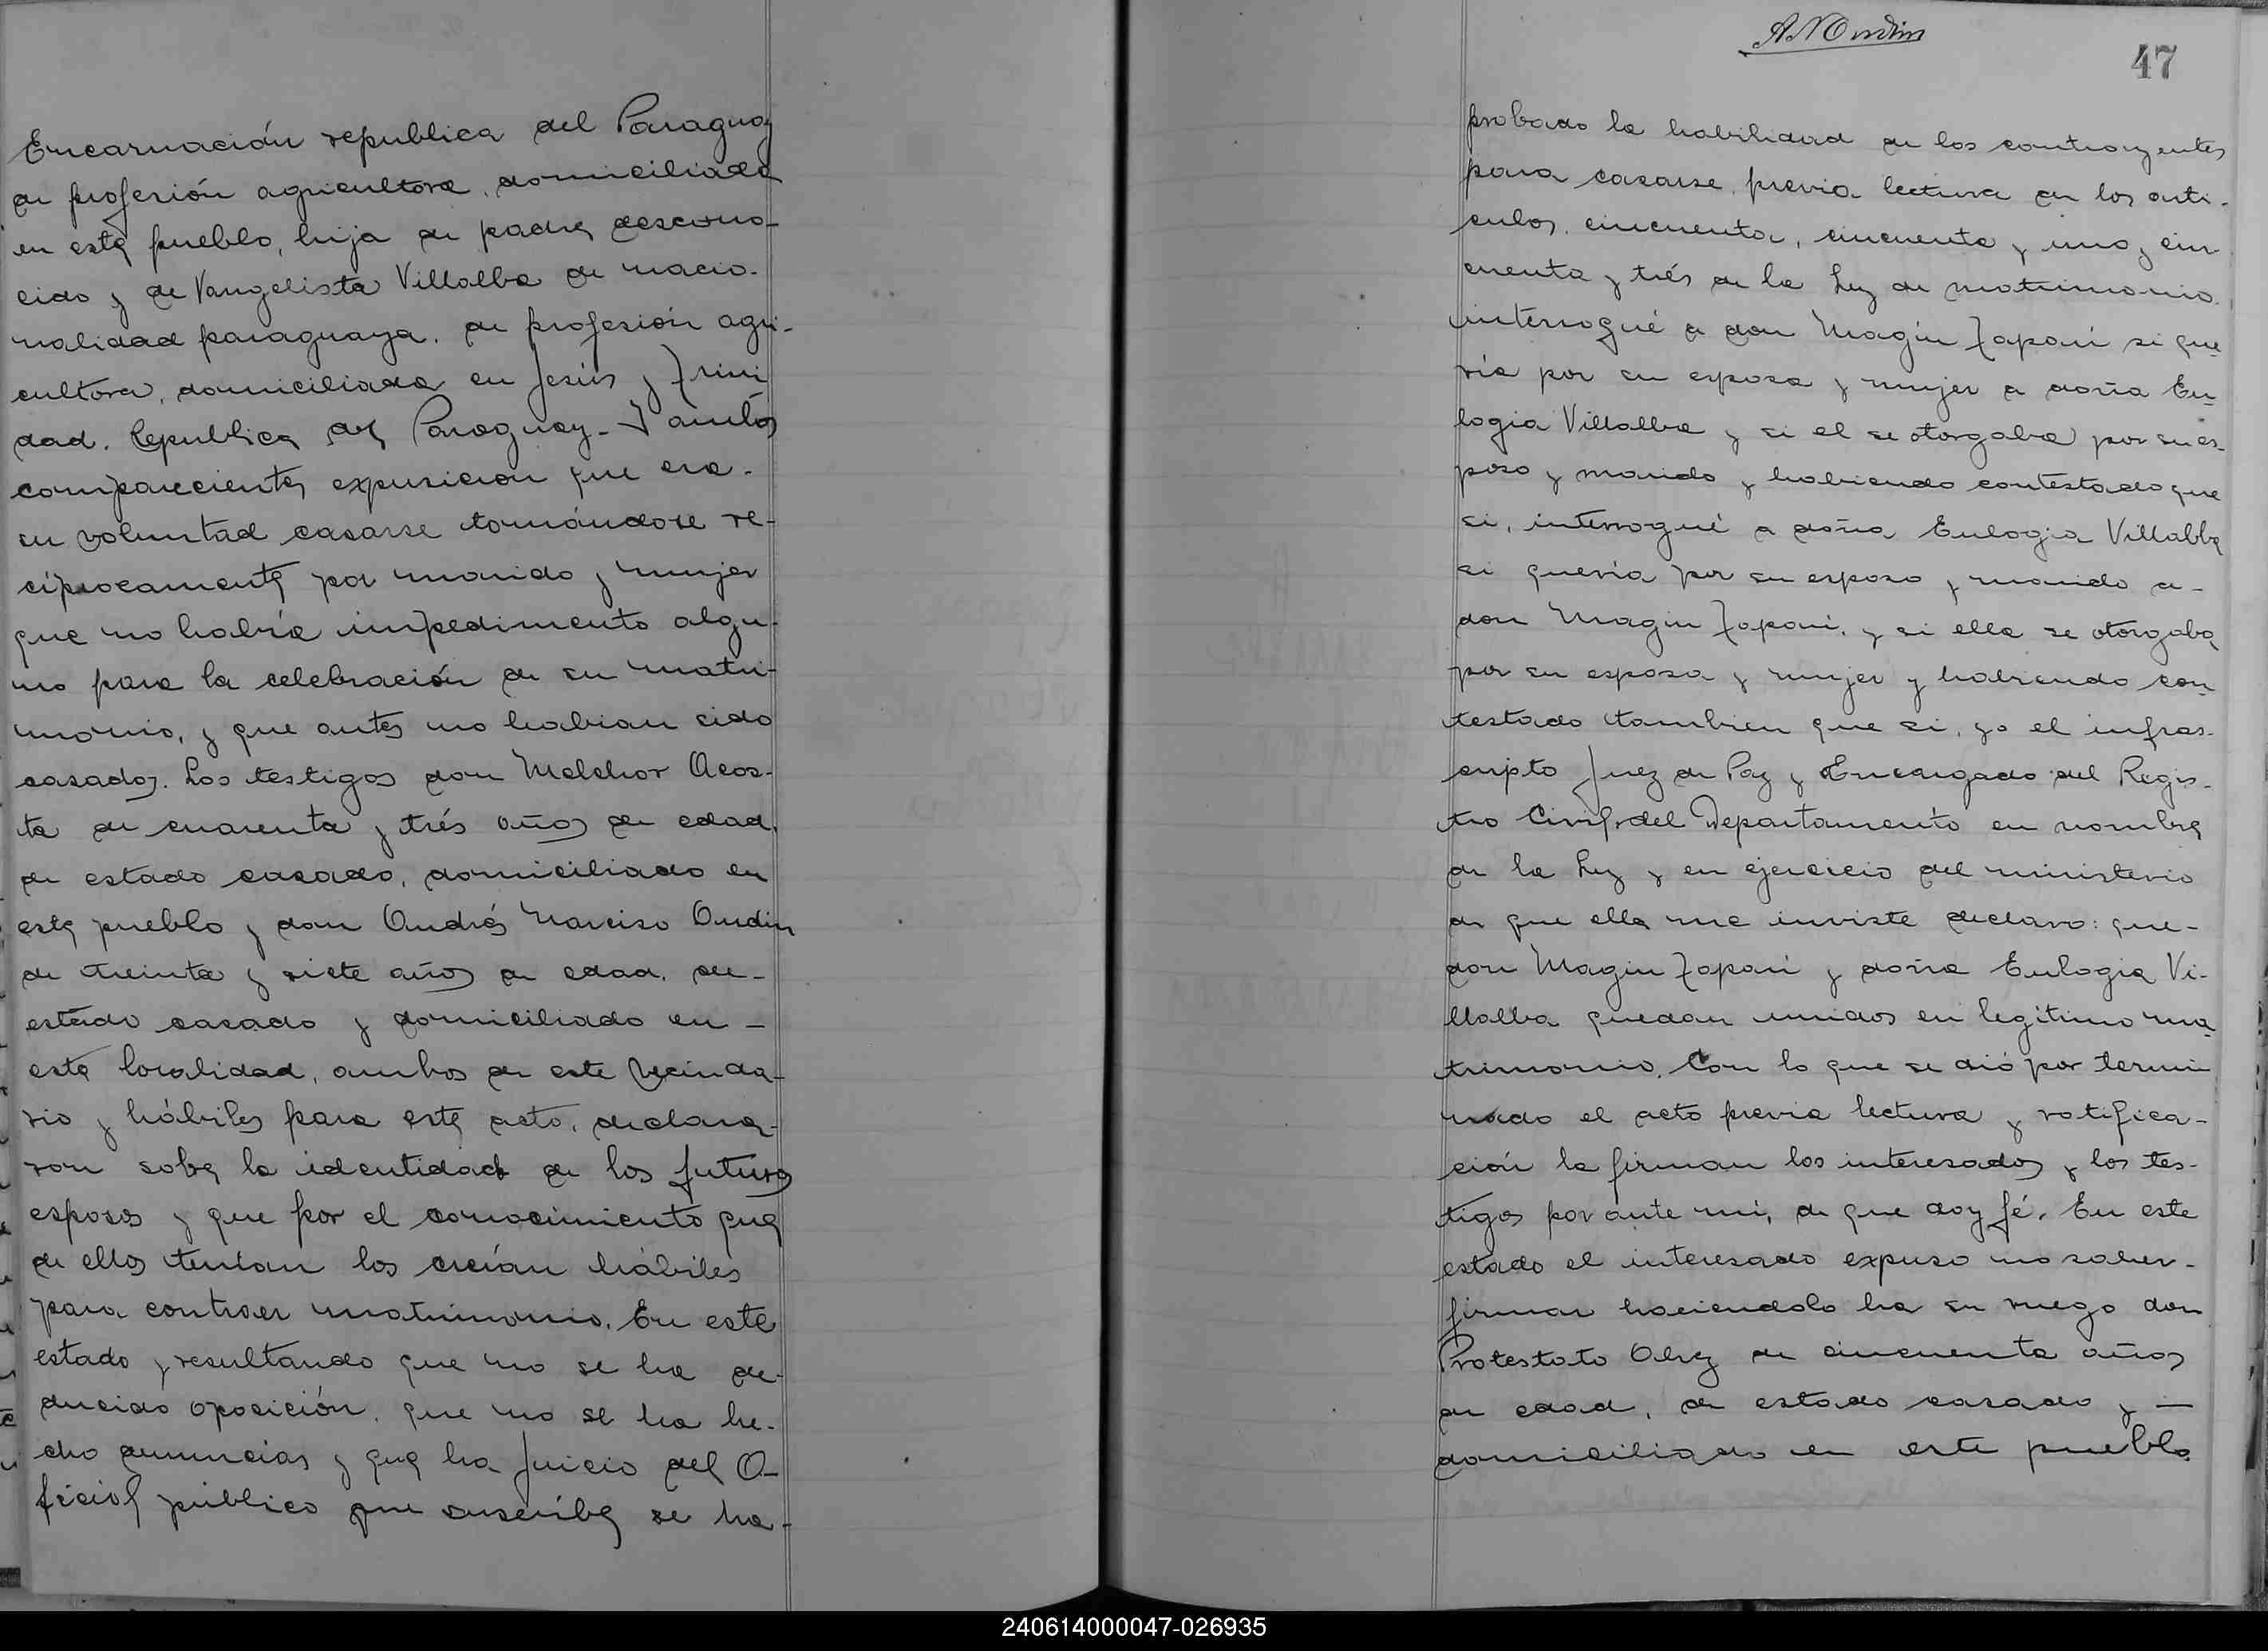 Encarnación republica del Paraguay
de profesión agricultora, domiciliada
en este pueblo, hija de padre descono-
cido y de Vangelista Villalba de nacio-
nalidad paraguaya, de profesión agri-
cultora, domiciliada en Jesús y Trini
dad. Republica del Paraguay - Y ambos
comparecientes expusieron que era-
su voluntad casarse tomándose re-
ciprocamente por marido y mujer
que no había impedimento algu-
no para la celebración de su matri-
monio, y que antes no habian sido
casados. Los testigos don Melchor Acos-
ta de cuarenta y trés años de edad,
de estado casado, domiciliado en
este pueblo y don Andrés Narciso Ondin
de treinta y siete años de edad, de-
estado casado y domiciliado en -
esta localidad, ambos de este vecinda-
rio y hábiles para este acto, declara-
ron sobre la identidad de los futuros
esposos y que por el conocimiento que
de ellos tenían los creían hábiles
para contraer matrimonio. En este
estado y resultando que no se ha de-
ducido oposición, que no se ha he-
cho denuncias y que ha Juicio del O-
ficial público que suscribe se ha-
A N Ondin
47
probado la habilidad de los contrayentes
para casarse, previa lectura de los arti-
culos, cincuenta, cincuenta y uno y cin
cuenta y trés de la Ley de matrimonio
interrogué a don Magin Zaponi si que
ría por su esposa y mujer a doña Eu-
logia Villalba y si el se otorgaba por su es-
poso y marido y habiendo contestado que
si, interrogué a doña Eulogia Villalba
si quería por su esposo y marido a-
don Magin Zaponi, y si ella se otorgaba
por su esposa y mujer y habiendo con
testado tambien que si, yo el infras-
cripto Juez de Paz y Encargado del Regis-
tro Civil, del Departamento en nombre
de la Ley y en ejercicio del ministerio
de que ella me inviste declaro: que-
don Magin Zaponi y doña Eulogia Vi-
llalba quedan unidos en legítimo ma-
trimonio. Con lo que se dió por termi
nado el acto previa lectura y ratifica-
ción la firman los interesados y los tes-
tigos por ante mi, de que doy fé. En este
estado el interesado expuso no saber-
firmar haciendolo ha su ruego don
Protestato de cincuenta años
de edad, de estado casado y -
domiciliado en este pueblo
240614000047-026935